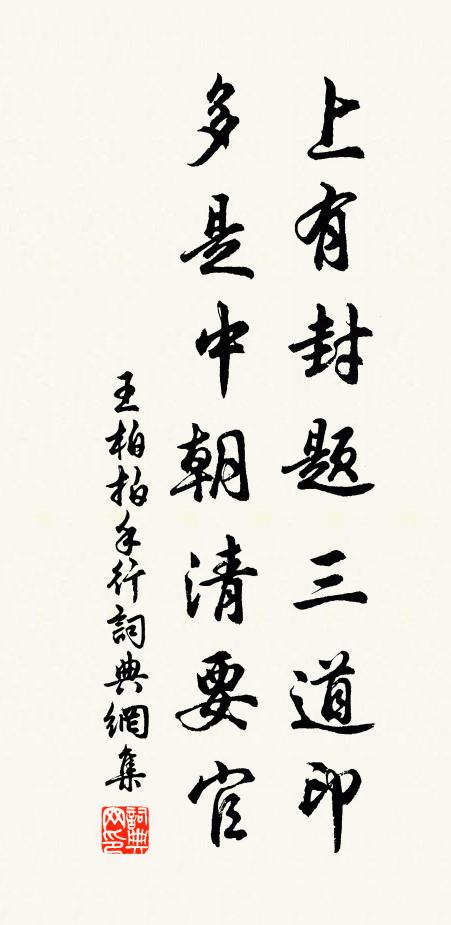 上有封题三道印
多是中朝清要官
王柏拍手行詞典網集
詞典网印